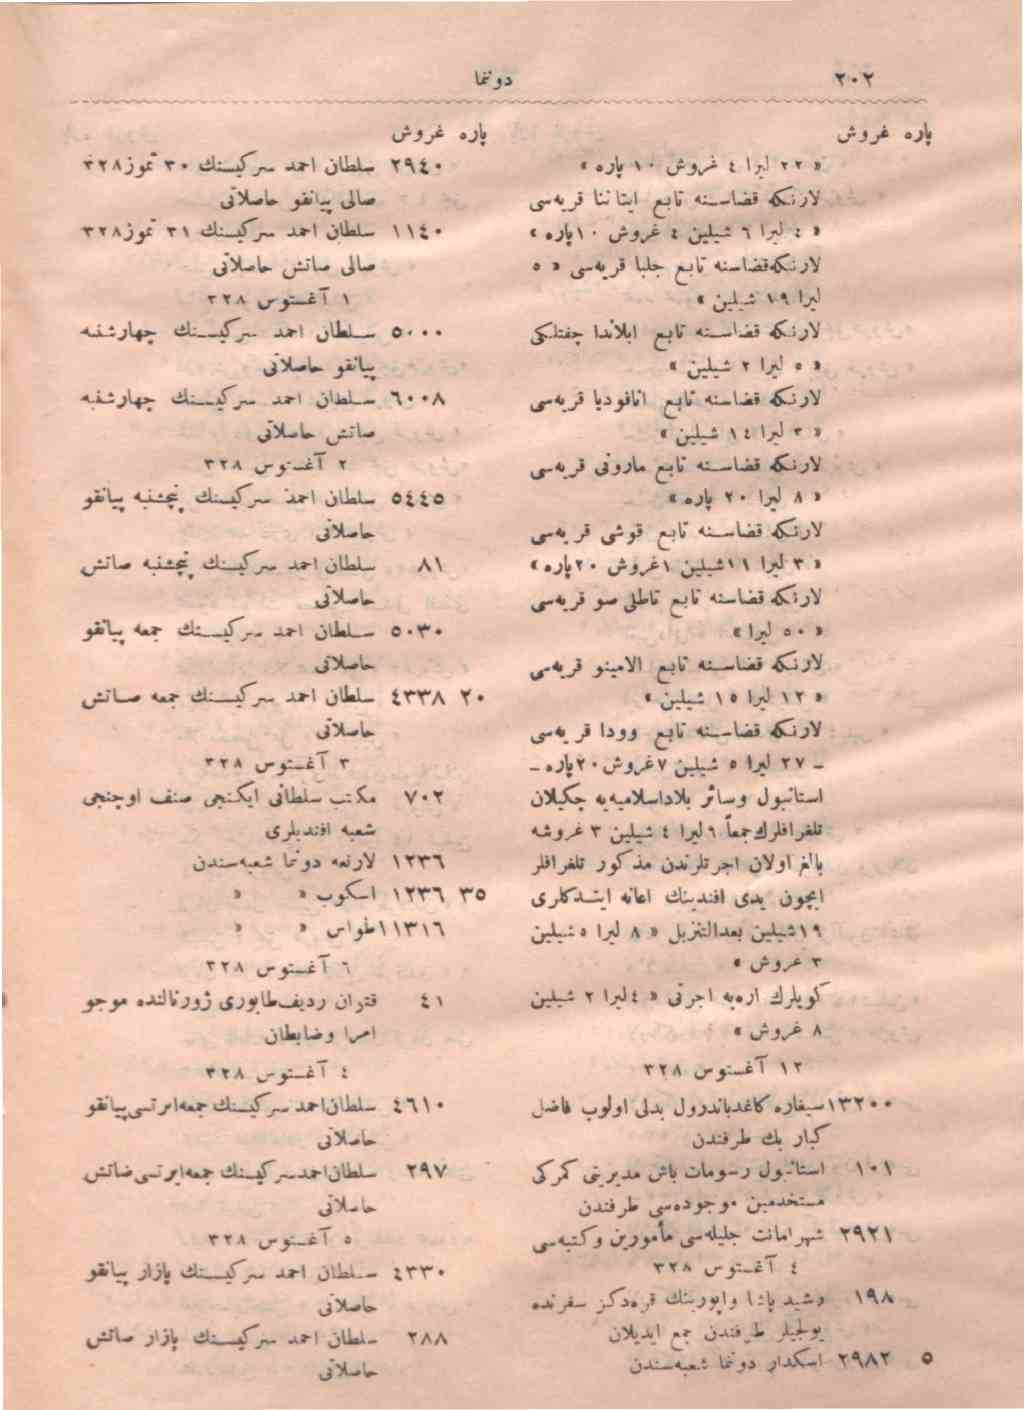 ٢٠٢
دوننما
پاره غروش
« ٢٢ ليرا ٤ غروش ١٠ پاره »
لارنكه قضاسنه تابع ايتاننا قريه‌سى
« ٤ ليرا ٦ شيلين ٤ غروش ١٠ پاره »
لارنكه قضاسنه تابع جلبا قريه‌سى « ٥
ليرا ١٩ شيلين »
لارنكه قضاسنه تابع ابلاندا چفتلكى
« ٥ ليرا ٢ شيلين »
لارنكه قضاسنه تابع انافوديا قريه‌سى
« ٣ ليرا ١٤ شيلين »
لارنكه قضاسنه تابع مارونى قريه‌سى
« ٨ ليرا ٢٠ پاره »
لارنكه قضاسنه تابع قوشى قريه‌سى
« ٣ ليرا ١١ شيلين ١ غروش ٢٠ پاره »
لارنكه قضاسنه تابع تاطلى صو قريه‌سى
« ٥٠ ليرا »
لارنكه قضاسنه تابع الامينو قريه‌سى
« ١٢ ليرا ١٥ شيلين »
لارنكه قضاسنه تابع وودا قريه‌سى
ـ ٢٧ ليرا ٥ شيلين ٧ غروش ٢٠ پاره ـ
استانبول وسائر بلاد اسلاميه‌يه چكيلان
تلغرافلرك جمعاً ٦ ليرا ٤ شيلين ٣ غروشه
بالغ اولان اجرتلرندن مذكور تلغرافلر
ايچون يدى افندينك اعانه ايتدكلرى
١٩ شيلين بعدالتنزيل « ٨ ليرا ٥ شيلين
٣ غروش »
كويلرك اره‌به اجرتى « ٤ ليرا ٢ شيلين
٨ غروش »
١٢ آغستوس ٣٢٨
١٣٢٠٠ سيغاره كاغد باندرول بدلى اولوپ فاضل
كبار بك طرفندن
١٠١ استانبول رسومات باش مديريتى كمركى
مستخدمين موجوده‌سى طرفندن
٢٩٢١ شهرامانت جليله‌سى مأمورين وكتبه‌سى
٤ آغستوس ٣٢٨
١٩٨ رشيد پاشا واپورينك قره‌دكز سفرنده
يولجيلر طرفندن جمع ايديلان
٥ ٢٩٨٢ اسكدار دوننما شعبه‌سندن
پاره غروش
٢٩٤٠ سلطان احمد سركيسنك ٣٠ تموز ٣٢٨
صالى پيانقو حاصلاتى
١١٤٠ سلطان احمد سركيسنك ٣١ تموز ٣٢٨
صالى صاتش حاصلاتى
١ آغستوس ٣٢٨
٥٠٠٠ سلطان احمد سركيسنك چهارشنبه
پيانقو حاصلاتى
٦٠٠٨ سلطان احمد سركيسنك چهارشنبه
صاتش حاصلاتى
٢ آغستوس ٣٢٨
٥٤٤٥ سلطان احمد سركيسنك پنچشنبه پيانقو
حاصلاتى
٨١ سلطان احمد سركيسنك پنچشنبه صاتش
حاصلاتى
٥٠٣٠ سلطان احمد سركيسنك جمعه پيانقو
حاصلاتى
٢٠ ٤٣٣٨ سلطان احمد سركيسنك جمعه صاتش
حاصلاتى
٣ آغستوس ٣٢٨
٧٠٢ مكتب سلطانى ايكنجى صنف اوچنجى
شعبه افنديلرى
١٢٣٦ لارنعه دوننما شعبه‌سندن
٣٥ ١٢٣٦ اسكوب » »
١١٣١٦ طواس » »
٦ آغستوس ٣٢٨
٤١ فتران رديف طابورى ژورنالنده موجو
امرا وضابطان
٤ آغستوس ٣٢٨
٤٦١٠ سلطان احمد سركيسنك جمعه‌ايرتسى پيانقو
حاصلاتى
٢٩٧ سلطان احمد سركيسنك جمعه‌ايرتسى صاتش
حاصلاتى
٥ آغستوس ٣٢٨
٤٣٣٠ سلطان احمد سركيسنك پازار پيانقو
حاصلاتى
٢٨٨ سلطان احمد سركيسنك پازار صاتش
حاصلاتى